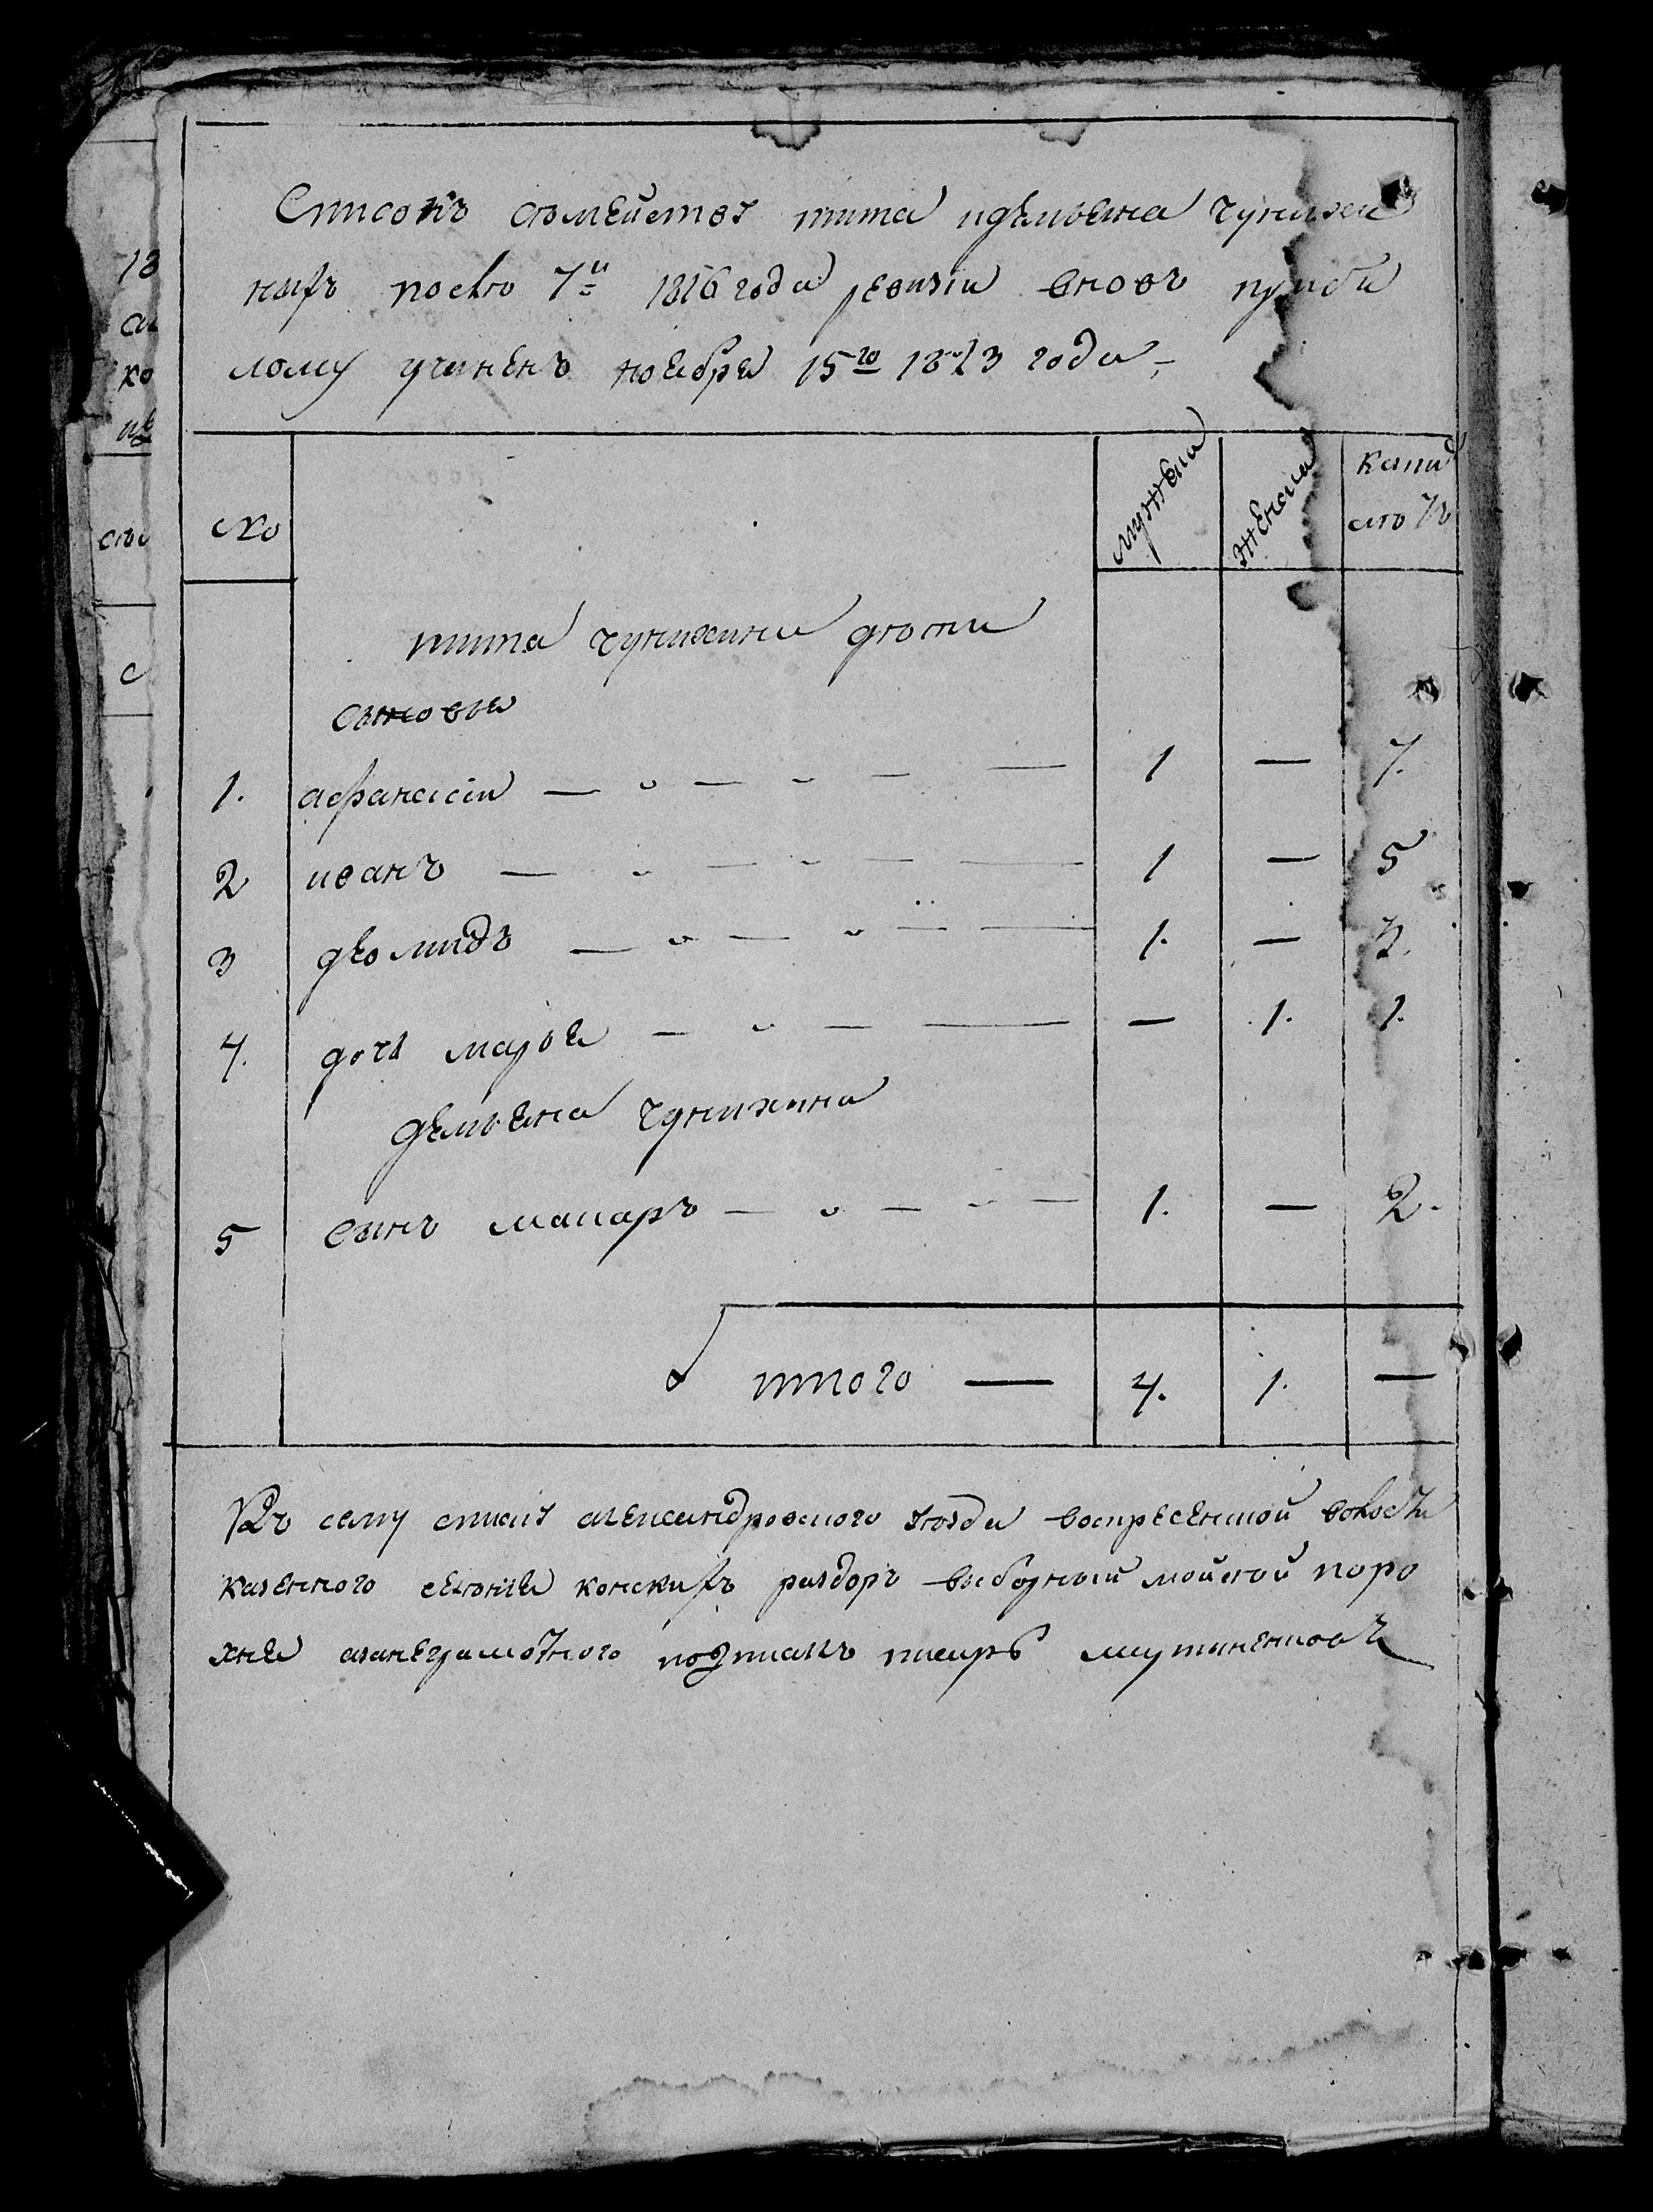 Списокъ съмейству тита идемьяна чунихи
ныхъ после 7й 1816 года ревизіи вновь прибы
лому учиненъ ноября 15го 1823 года
№ мужеска женска каки лѣтъ
тита чунихина дѣти
сыновья
1. афанасіи — 1 — 7.
2 иванъ — 1 — 5
3 деомидъ — 1. — 3.
4. дочь марья — — 1. 1.
демьяна чунихина
5 сынъ макаръ — 1. — 2.
итого — 4. 1. —
Къ сему списку александровского уезда воскресенской волости
казенного селения конскихъ раздоръ выборный мойсей поро
хня азанеграмотного подписалъ писарь